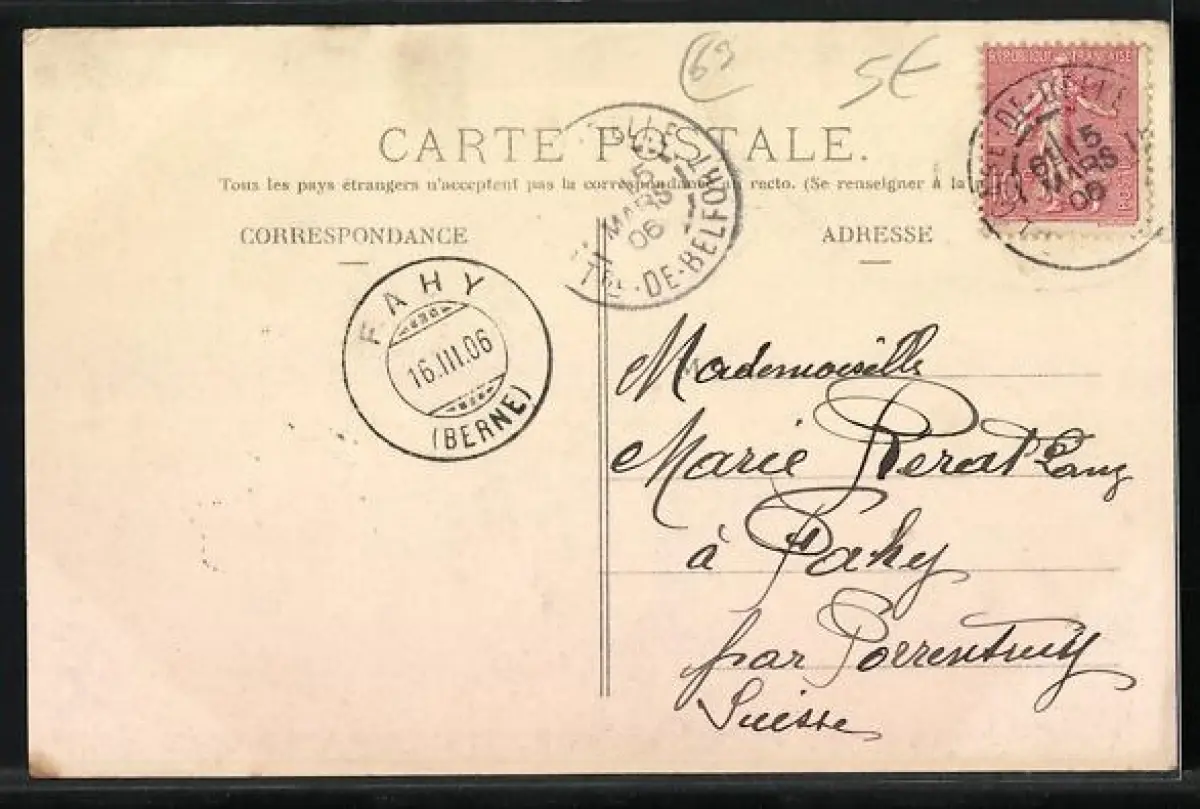 69 5€
RÉPUBLIQUE FRANÇAISE
CARTE POSTALE.
Tous les pays étrangers n'acceptent pas la correspondance au recto. (Se renseigner à la
CORRESPONDANCE
ADRESSE
DELLE
15
MARS
06
TRE-DE-BELFORT
DE-DELLE
15
MARS
06
POSTES
FAHY
BERN
16.III.06
BERN
(BERNE)
Mademoiselle
Marie Perat Lang
à Fahy
par Porrentruy
Suisse